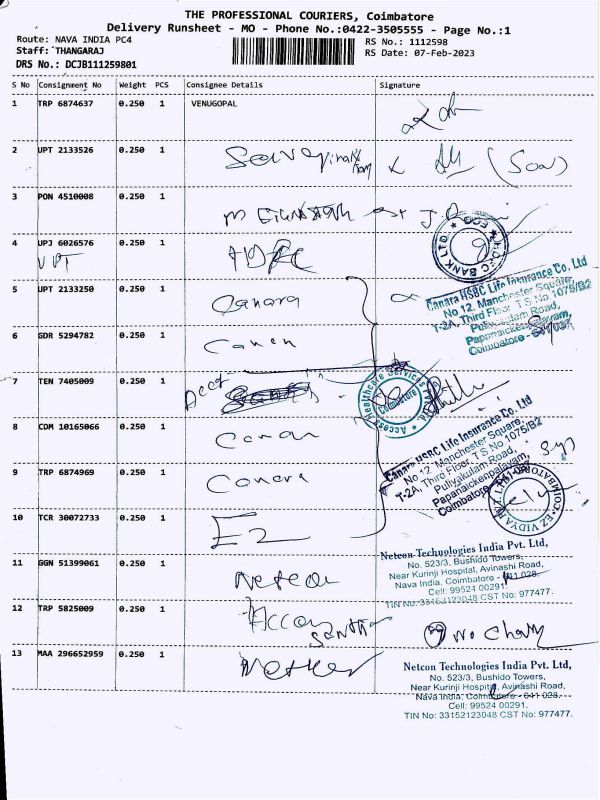 THE PROFESSIONAL COURIERS, Coimbatore
Delivery Runsheet - MO - Phone No.:0422-3505555 - Page No.:1
Route: NAVA INDIA PC4
RS No.: 1112598
Staff: THANGARAJ
RS Date: 07-Feb-2023
DRS No.: DCJB111259801
S No Consignment No Weight PCS Consignee Details Signature
1 TRP 6874637 0.250 1 VENUGOPAL
2 UPT 2133526 0.250 1
3 PON 4510008 0.250 1
4 UPJ 6026576 0.250 1
UPT
HDFC BANK LTD.
5 UPT 2133250 0.250 1 Canara
Canara HSBC Life Insurance Co. Ltd
No 12, Manchester Square,
T-2A, Third Floor, T S No 1075/B2
Puliyakulam Road,
Papanaickenpalayam,
Coimbatore -
6 GDR 5294782 0.250 1
7 TEN 7405009 0.250 1
Access Healthcare Services
Coimbatore
8 CDM 10165066 0.250 1
Canara HSBC Life Insurance Co. Ltd
No 12, Manchester Square,
T-2A, Third Floor, T S No 1075/B2
Puliyakulam Road,
Papanaickenpalayam,
Coimbatore
9 TRP 6874969 0.250 1 Canara
10 TCR 30072733 0.250 1 EZ
EZ VIDYA PVT LTD COIMBATORE
11 GGN 51399061 0.250 1 Netcon
Netcon Technologies India Pvt. Ltd,
No. 523/3, Bushido Towers,
Near Kurinji Hospital, Avinashi Road,
Nava India, Coimbatore - 641 028.
Cell: 99524 00291
TIN No: 33152123048 CST No: 977477.
12 TRP 5825009 0.250 1
13 MAA 296652959 0.250 1
Netcon Technologies India Pvt. Ltd,
No. 523/3, Bushido Towers,
Near Kurinji Hospital, Avinashi Road,
Nava India, Coimbatore - 641 028.
Cell: 99524 00291.
TIN No: 33152123048 CST No: 977477.